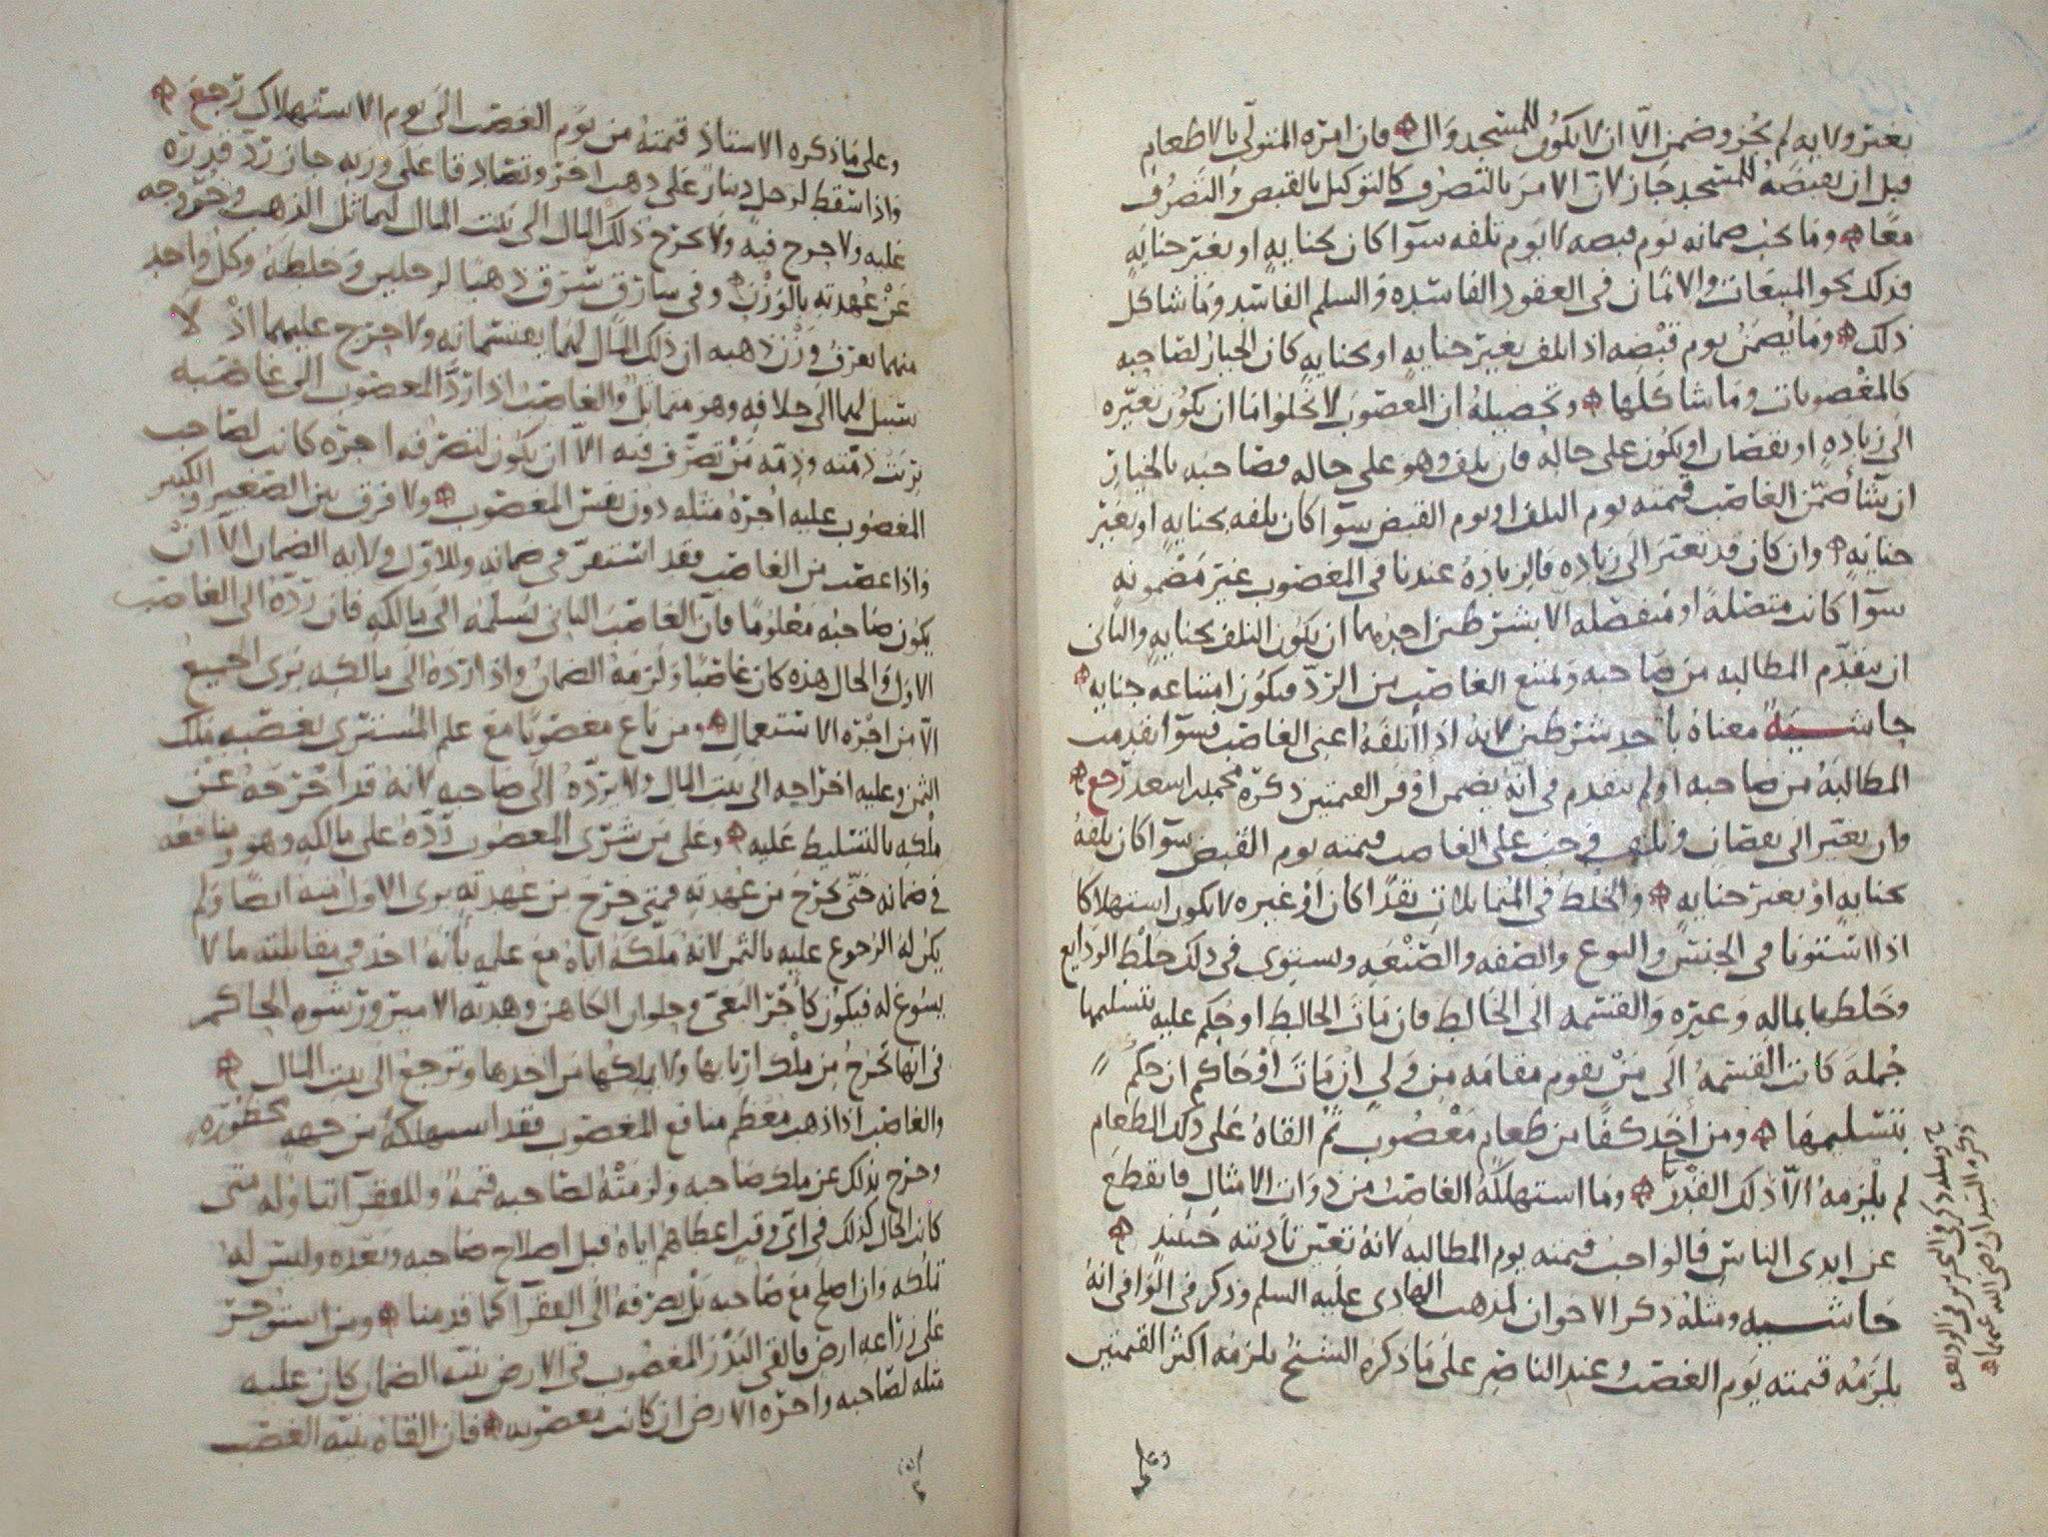 بغير ولايه لم يجز وضمن الّا ان لا يكون للمسجد وال فان امره المتولّي بالاطعام
قبل ان يقبضه للمسجد جاز لانّ الامر بالتصرف كالتوكيل بالقبض والتصرف
معًا وما يجب ضمانه يوم قبضه لا يوم تلفه سوآ كان بجنايةٍ او بغير جنايةٍ
فذلك نحو المبيعات والاثمان في العقود الفاسده والسلم الفاسد وما شاكل
ذلك وما يضمن يوم قبضه اذا تلف بغير جنايةٍ او بجنايةٍ كان الخيار لصاحبه
كالمغصوبات وما شاكلها وتحصيله ان المغصوب لا يخلوا اما ان يكون تغيّره
الى زيادهٍ او نقصان او يكون على حاله فان تلف وهو على حاله فصاحبه بالخيار
ان شآ ضمّن الغاصب قيمته يوم التلف او يوم القبض سوآ كان تلفه بجنايةٍ او بغير
جنايةٍ وان كان قد تغير الى زياده فالزيادة عندنا في المغصوب غير مضمونهٍ
سوآ كانت متصلهً او منفصله الا بشرطين احدهما ان يكون التلف بجنايةٍ والثاني
ان يتقدّم المطالبه من صاحبه ويمتنع الغاصب من الردّ فيكون امتناعه جنايه
حاشية معناه باحد شرطين لانه اذا اتلفه اعني الغاصب فسوآ تقدمت
المطالبة من صاحبه او لم يتقدم في انّه يضمن اوفر القيمتين ذكره محمد بن اسعد رجع
وان تغيّر الى نقصان وتلف وجب على الغاصب قيمته يوم القبض سوآ كان تلفه
بجنايةٍ او بغير جنايةٍ والخلط في المتماثلات نقدًا كان او غيره لا يكون استهلاكا
اذا استوتا في الجنس والنوع والصفه والصنعه ويستوي في ذلك خلط الودايع
وخلطها بماله وغيره والقسمه الى الخالط فان مات الخالط او حكم عليه بتسليمها
جملة كانت القسمة الى من يقوم مقامه من ولي ان مات او حاكم ان حكم
بتسليمها ومن اخذ كفًا من طعام مغصوب ثمّ القاه على ذلك الطعام
لم يلزمه الّا ذلك القدر وما استهلكه الغاصب من ذوات الامثال فانقطع
عن ايدي الناس فالواجب قيمته يوم المطالبه لانه تعيّن تاديته حينئذ
حاشيه ومثله ذكر الاخوان لمذهب الهادي عليه السلم وذكر في الوافي انه
يلزمه قيمته يوم الغصب وعند الناصر على ما ذكره الشيخ يلزمه اكثر القيمتين
وعلى
وعلى ما ذكره الاستاذ قيمته من يوم الغصب الى يوم الاستهلاك رجع
واذا سقط لرجل دينار على ذهب اخر وتصادقا على وزنه جاز ردّ قدره
عليه ولا حرج فيه ولا يخرج ذلك المال الى بيت المال لتماثل الذهب وخروجه
عن عهدته بالوزن وفي سارق سرق ذهبًا لرجلين وخلطه وكل واحد
منهما يعرف وزن ذهبه ان ذلك المال لهما يقتسمانه ولا حرج عليهما اذ لا
سبيل لهما الى خلافه وهو متماثل والغاصب اذا ردّ المغصوب الى غاصبه
بريت ذمّته وذمّه من تصرّف فيه الّا ان يكون لتصرفه اجره كانت لصاحب
المغصوب عليه اجره مثله دون نفس المغصوب ولا فرق بين الصغير والكبير
واذا غصب من الغاصب فقد استقرّ في ضمانه وللاوّل ولايه الضمان الّا ان
يكون صاحبه معلومًا فان الغاصب الثاني يسلمه الى مالكه فان ردّه الى الغاصب
الاول والحال هذه كان غاصبًا ولزمه الضمان واذا ردّه الى مالكه برئ الجميع
الّا من اجره الاستعمال ومن باع مغصوبًا مع علم المشتري بغصبه ملك
الثمن وعليه اخراجه الى بيت المال ولا يردّه الى صاحبه لانه قد اخرجه عن
ملكه بالتسليط عليه وعلى من شرى المغصوب ردّه على مالكه وهو ومنافعه
في ضمانه حتّى يخرج من عهدته فمتى خرج من عهدته برئ الاول منه ايضًا ولم
يكن له الرجوع عليه بالثمن لانه ملكه اياه مع علمه بانه اخذ في مقابلته ما لا
يسوغ له فيكون كاجر البغي وحلوان الكاهن وهديّه الامير ورشوه الحاكم
في انها تخرج من ملك اربابها ولا يملكها من اخذها وترجع الى بيت المال
والغاصب اذا اذهب معظم منافع المغصوب فقد استهلكه من جههٍ محظوره
وخرج بذلك عن ملك صاحبه ولزمته لصاحبه قيمةً وللفقرآ انتاوله متى
كانت الحال كذلك في ايّ وقت اعطاهم اياه قبل اصلاح صاحبه وبعده وليس له
تملكه وان اصلح مع صاحبه بل يصرفه الى الفقرآ كما قدمنا ومن استوجر
على زراعه ارض فالقى البذر المغصوب في الارض بنيّه الضمان كان عليه
مثله لصاحبه واجره الارض ان كانت مغصوبه فان القاه بنيّه الغصب